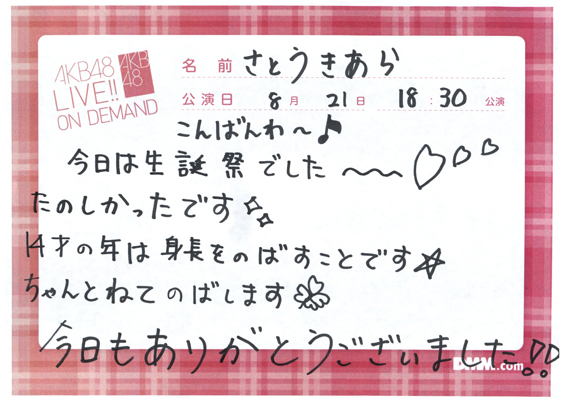 AKB48
LIVE!!
ON DEMAND
AKB
48
名前 さとうきあら
公演日 8月 21日 18:30 公演
こんばんわ〜♪
今日は生誕祭でした〜〜♡♡♡
たのしかったです
14才の年は身長をのばすことです☆
ちゃんとねてのばします
今日もありがとうございました!!
DMM.com